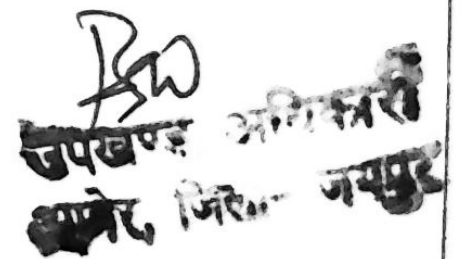 उपखण्ड अधिकारी
आमेर, जिला जयपुर